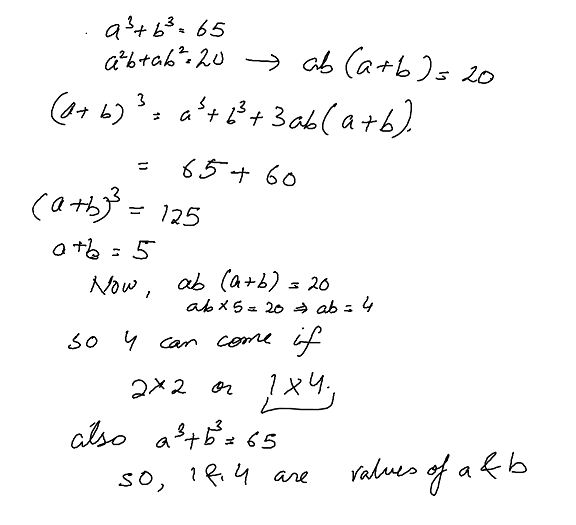 a³+b³=65
a²b+ab²=20 → ab(a+b)=20
(a+b)³=a³+b³+3ab(a+b).
= 65+60
(a+b)³=125
a+b=5
Now, ab (a+b)=20
ab×5=20 ⇒ ab=4
so 4 can come if
2×2 or 1×4.
also a³+b³=65
so, 1 & 4 are values of a & b